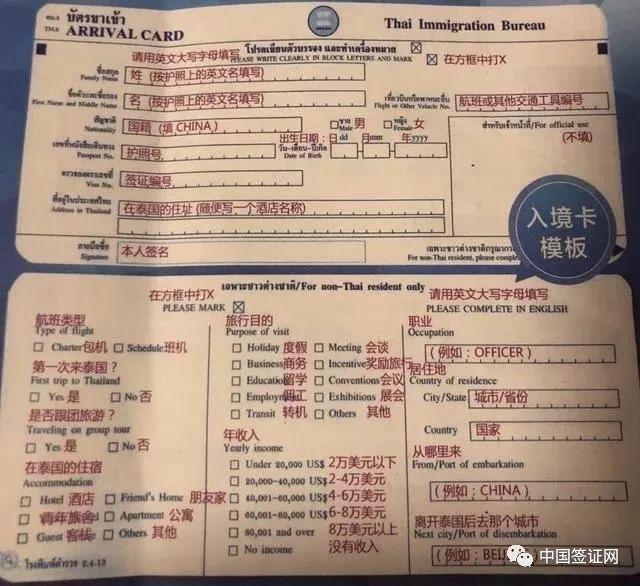 ตม.6 บัตรขาเข้า
TM.6 ARRIVAL CARD
Thai Immigration Bureau
请用英文大写字母填写 โปรดเขียนตัวบรรจง และทำเครื่องหมาย
PLEASE WRITE CLEARLY IN BLOCK LETTERS AND MARK
在方框中打X
ชื่อสกุล
Family Name
姓 (按护照上的英文名填写)
ชื่อตัวและชื่อรอง
First Name and Middle Name
名 (按护照上的英文名填写)
เที่ยวบินหรือพาหนะอื่น
Flight or Other Vehicle No.
航班或其他交通工具编号
สัญชาติ
Nationality
国籍 (填 CHINA)
ชาย
Male 男
หญิง
Female 女
สำหรับเจ้าหน้าที่/For official use
(不填)
เลขที่หนังสือเดินทาง
Passport No.
护照号
出生日期: 日 dd 月mm 年yyyy
วัน-เดือน-ปีเกิด
Date of Birth
ตรวจลงตราเลขที่
Visa No.
签证编号
ที่อยู่ในประเทศไทย
Address in Thailand
在泰国的住址 (随便写一个酒店名称)
ลายมือชื่อ
Signature
本人签名
เฉพาะชาวต่างชาติกรุณากรอ
For non-Thai resident, please complet
入境卡
模板
เฉพาะชาวต่างชาติ/For non-Thai resident only
在方框中打X
PLEASE MARK
请用英文大写字母填写
PLEASE COMPLETE IN ENGLISH
航班类型
Type of flight
Charter包机 Schedule班机
第一次来泰国?
First trip to Thailand
Yes 是 No 否
是否跟团旅游?
Traveling on group tour
Yes 是 No 否
在泰国的住宿
Accommodation
Hotel 酒店 Friend's Home 朋友家
青年旅舍 Apartment 公寓
Guest 客栈 Others 其他
โรงพิมพ์ตำรวจ
旅行目的
Purpose of visit
Holiday 度假 Meeting 会谈
Business商务 Incentive奖励旅行
Education留学 Conventions会议
Employment佣工 Exhibitions 展会
Transit 转机 Others 其他
年收入
Yearly income
Under 20,000 US$ 2万美元以下
20,000-40,000 US$ 2-4万美元
40,001-60,000 US$ 4-6万美元
60,001-80,000 US$ 6-8万美元
80,001 and over 8万美元以上
No income 没有收入
职业
Occupation
(例如: OFFICER)
居住地
Country of residence
City/State 城市/省份
Country 国家
从哪里来
From/Port of embarkation
(例如: CHINA)
离开泰国后去那个城市
Next city/Port of disembarkation
(例如: BEIJ
中国签证网